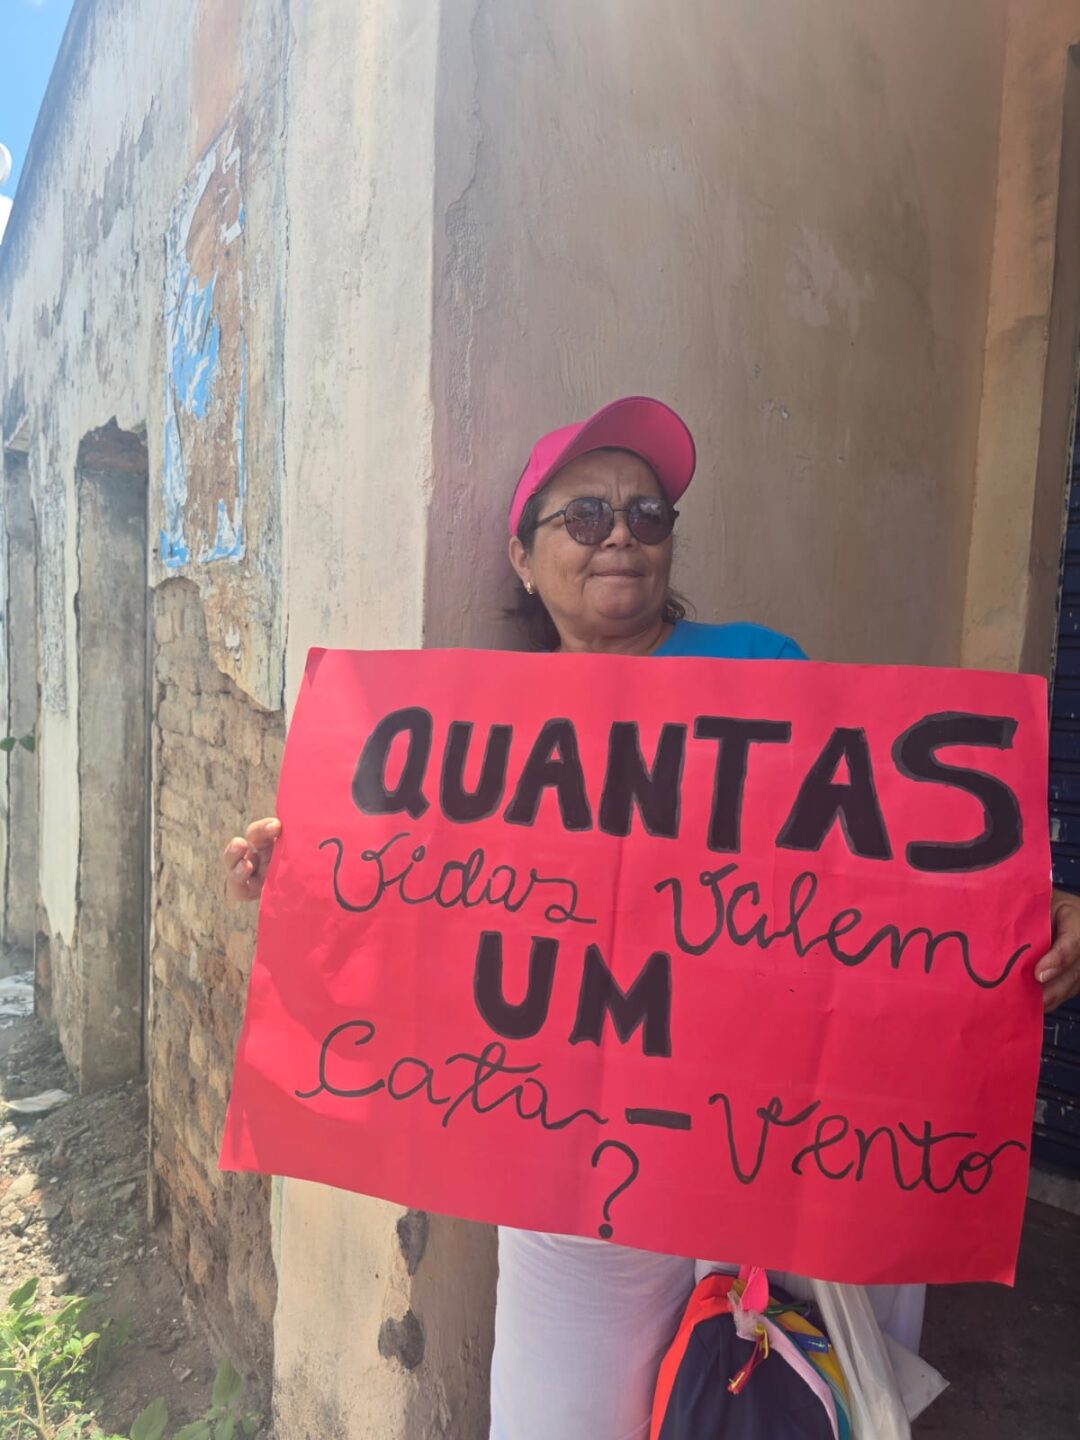 QUANTAS
Vidas Valem
UM
Cata-Vento
?